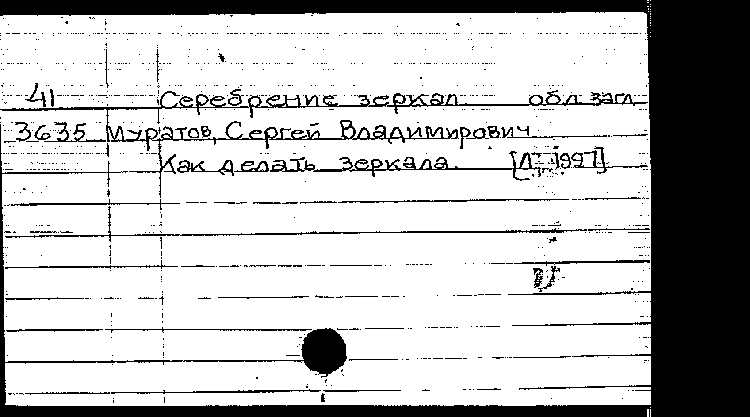 41 Серебрение зеркал. обл. загл.
3635 Муратов, Сергей Владимирович.
Как делать зеркала. [Л. 1927]